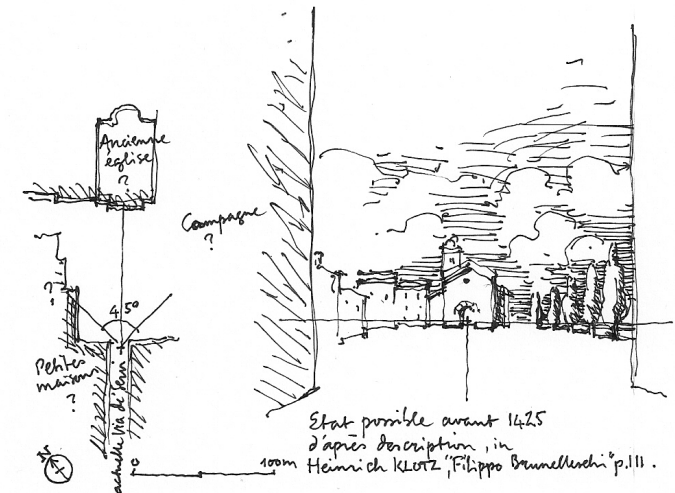 Ancienne
église
?
Campagne
?
45°
?
Petites
maisons
?
actuelle Via de' Servi
N
0
100m
Etat possible avant 1425
d'après description, in
Heinrich KLOTZ, "Filippo Brunelleschi" p.111.